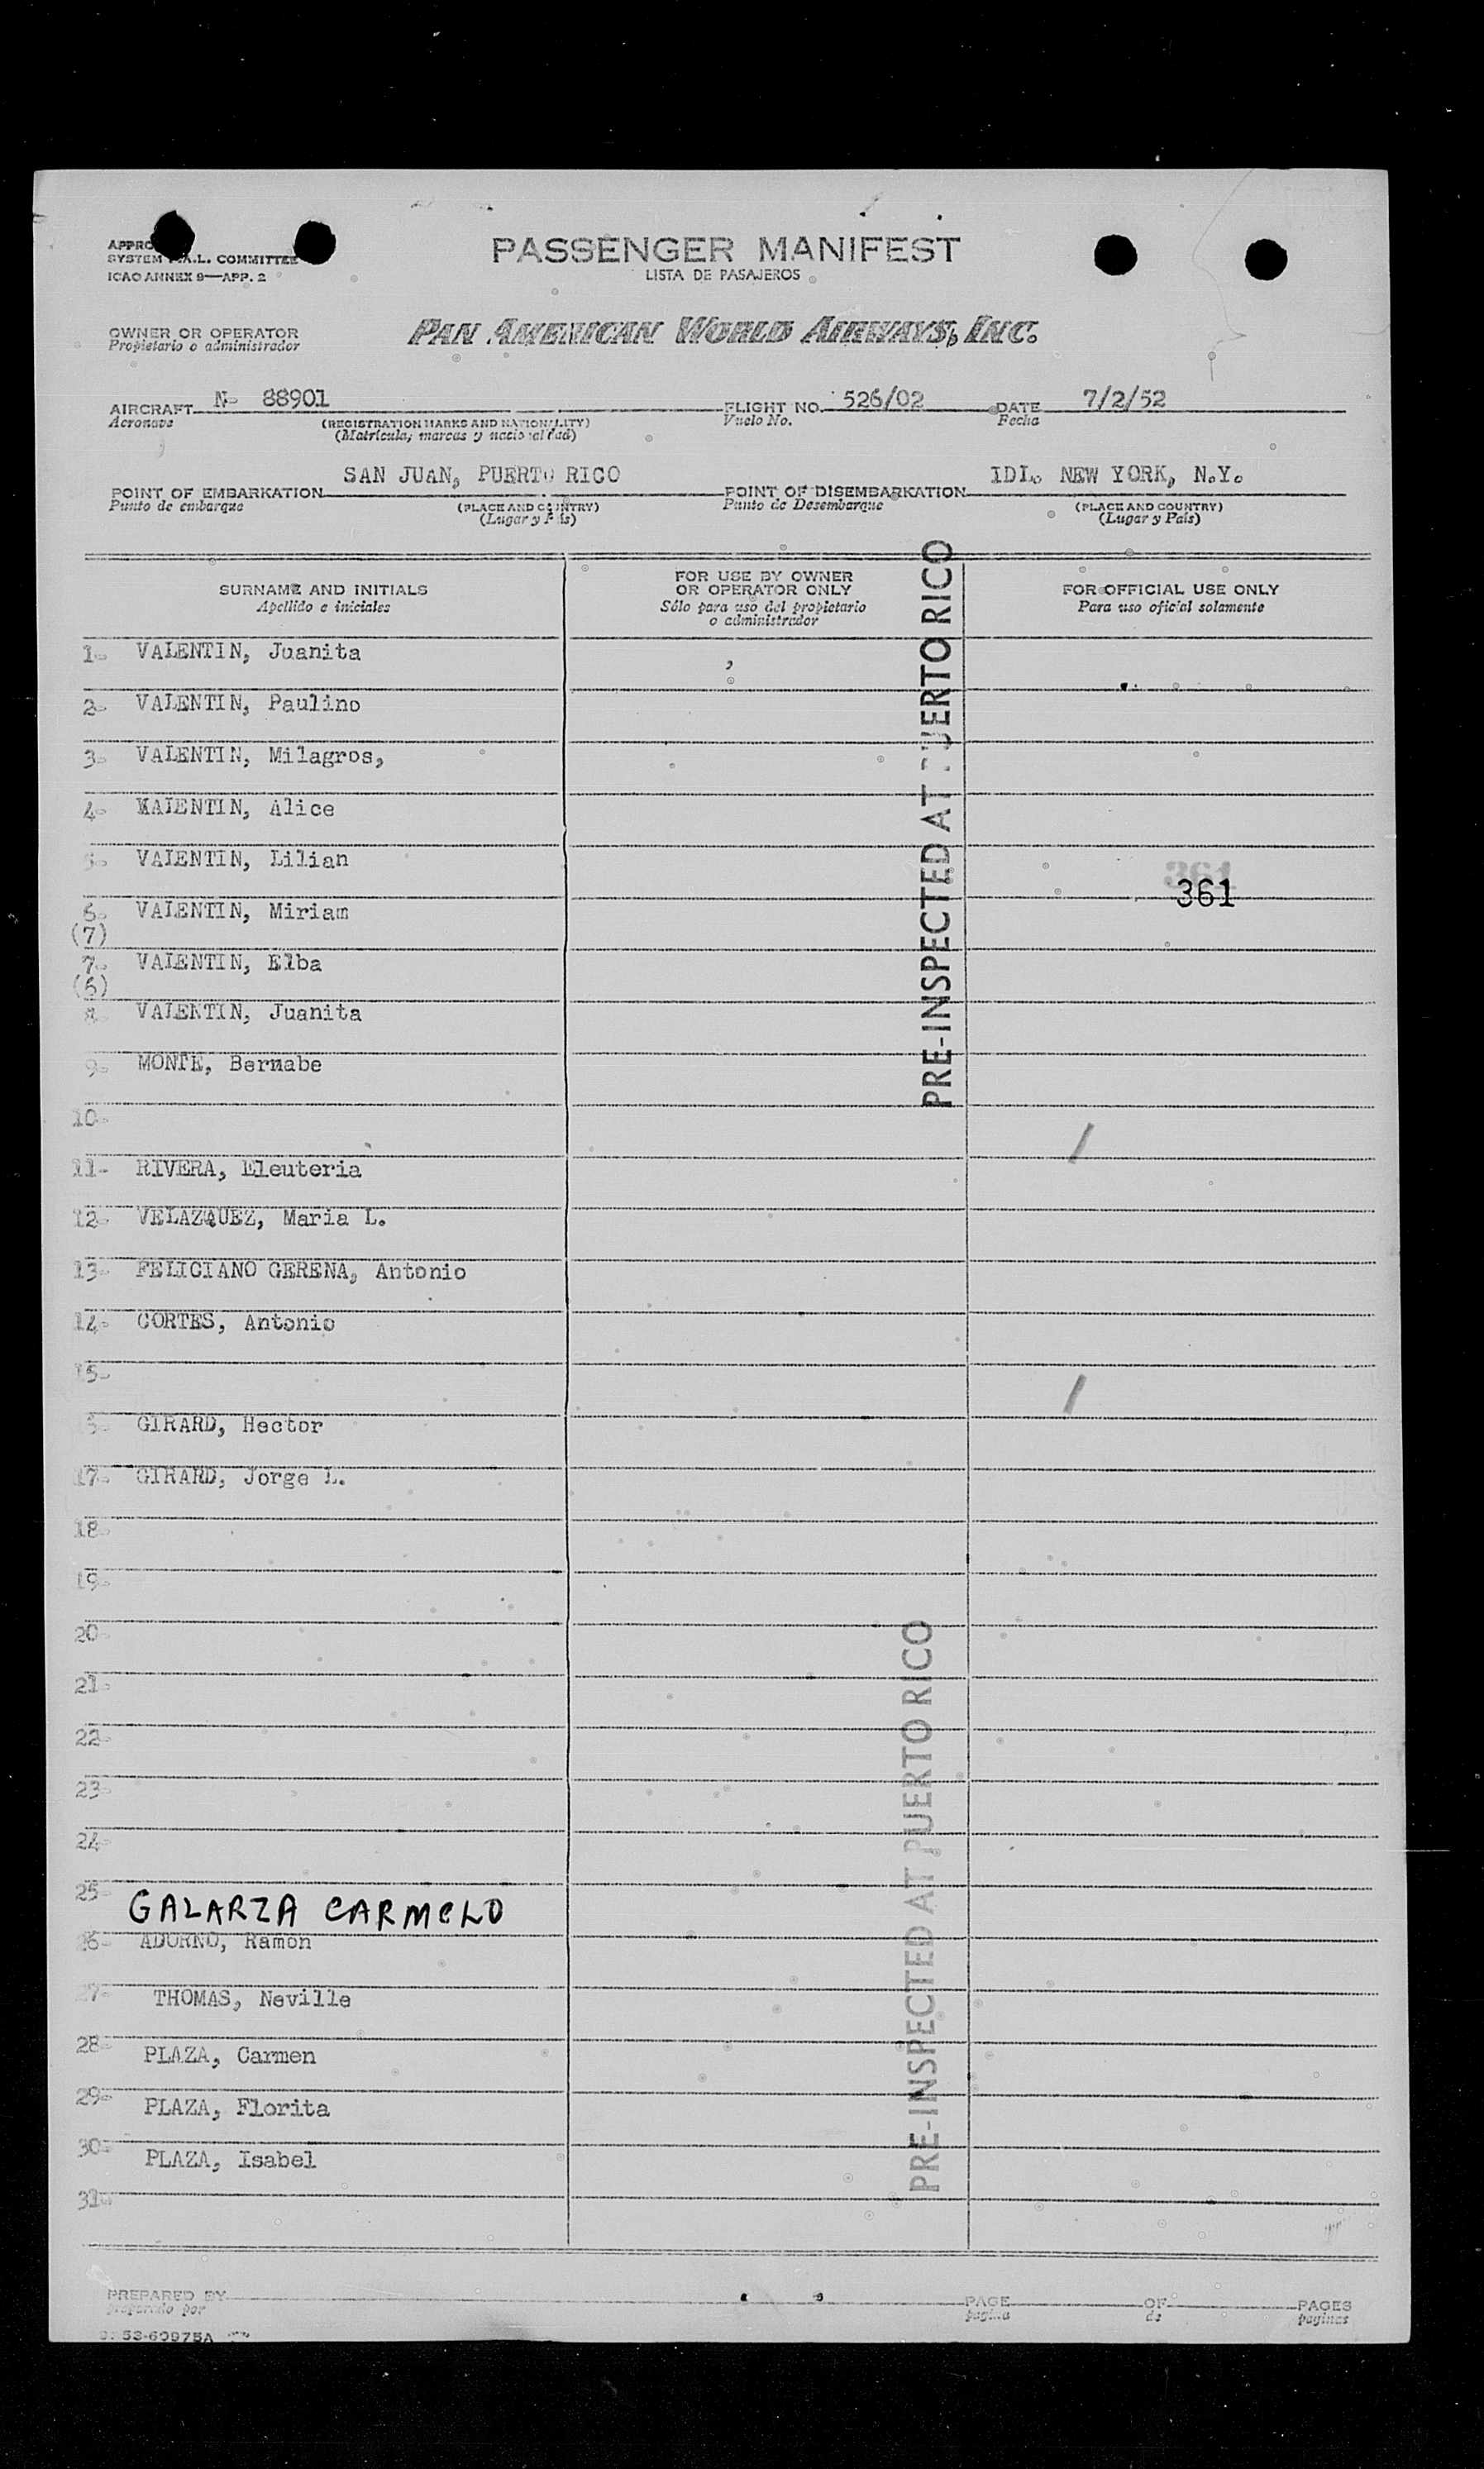 PASSENGER MANIFEST
LISTA DE PASAJEROS
SYSTEM A.L. COMMITTEE
ICAO ANNEX 9—APP. 2
OWNER OR OPERATOR
Propietario o administrador
PAN AMERICAN WORLD AIRWAYS, INC.
AIRCRAFT N- 88901 FLIGHT NO. 526/02 DATE 7/2/52
Aeronave (REGISTRATION MARKS AND NATIONALITY) Vuelo No. Fecha
(Matrícula, marcas y nacionalidad)
POINT OF EMBARKATION SAN JUAN, PUERTO RICO POINT OF DISEMBARKATION IDL. NEW YORK, N.Y.
Punto de embarque (PLACE AND COUNTRY) Punto de Desembarque (PLACE AND COUNTRY)
(Lugar y País) (Lugar y País)
SURNAME AND INITIALS
Apellido e iniciales
FOR USE BY OWNER
OR OPERATOR ONLY
Sólo para uso del propietario
o administrador
FOR OFFICIAL USE ONLY
Para uso oficial solamente
1- VALENTIN, Juanita
2- VALENTIN, Paulino
3- VALENTIN, Milagros,
4- VALENTIN, Alice
5- VALENTIN, Lilian
361
361
6- VALENTIN, Miriam
(7)
7- VALENTIN, Elba
(6)
8- VALENTIN, Juanita
9- MONTE, Bernabe
10-
11- RIVERA, Eleuteria
12- VELAZQUEZ, Maria L.
13- FELICIANO GERENA, Antonio
14- CORTES, Antonio
15-
6- GIRARD, Hector
17- GIRARD, Jorge L.
18-
19-
20-
21-
22-
23-
24-
25- GALARZA CARMELO
26- ADORNO, Ramon
27- THOMAS, Neville
28- PLAZA, Carmen
29- PLAZA, Florita
30- PLAZA, Isabel
31-
PRE-INSPECTED AT PUERTO RICO
PRE-INSPECTED AT PUERTO RICO
PREPARED BY PAGE OF PAGES
preparado por pagina de paginas
53-60975A